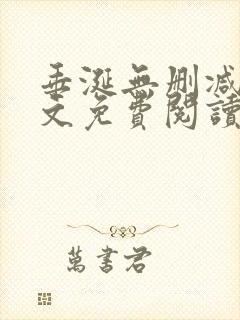 垂涎無刪減
文免費閱讀
萬書君